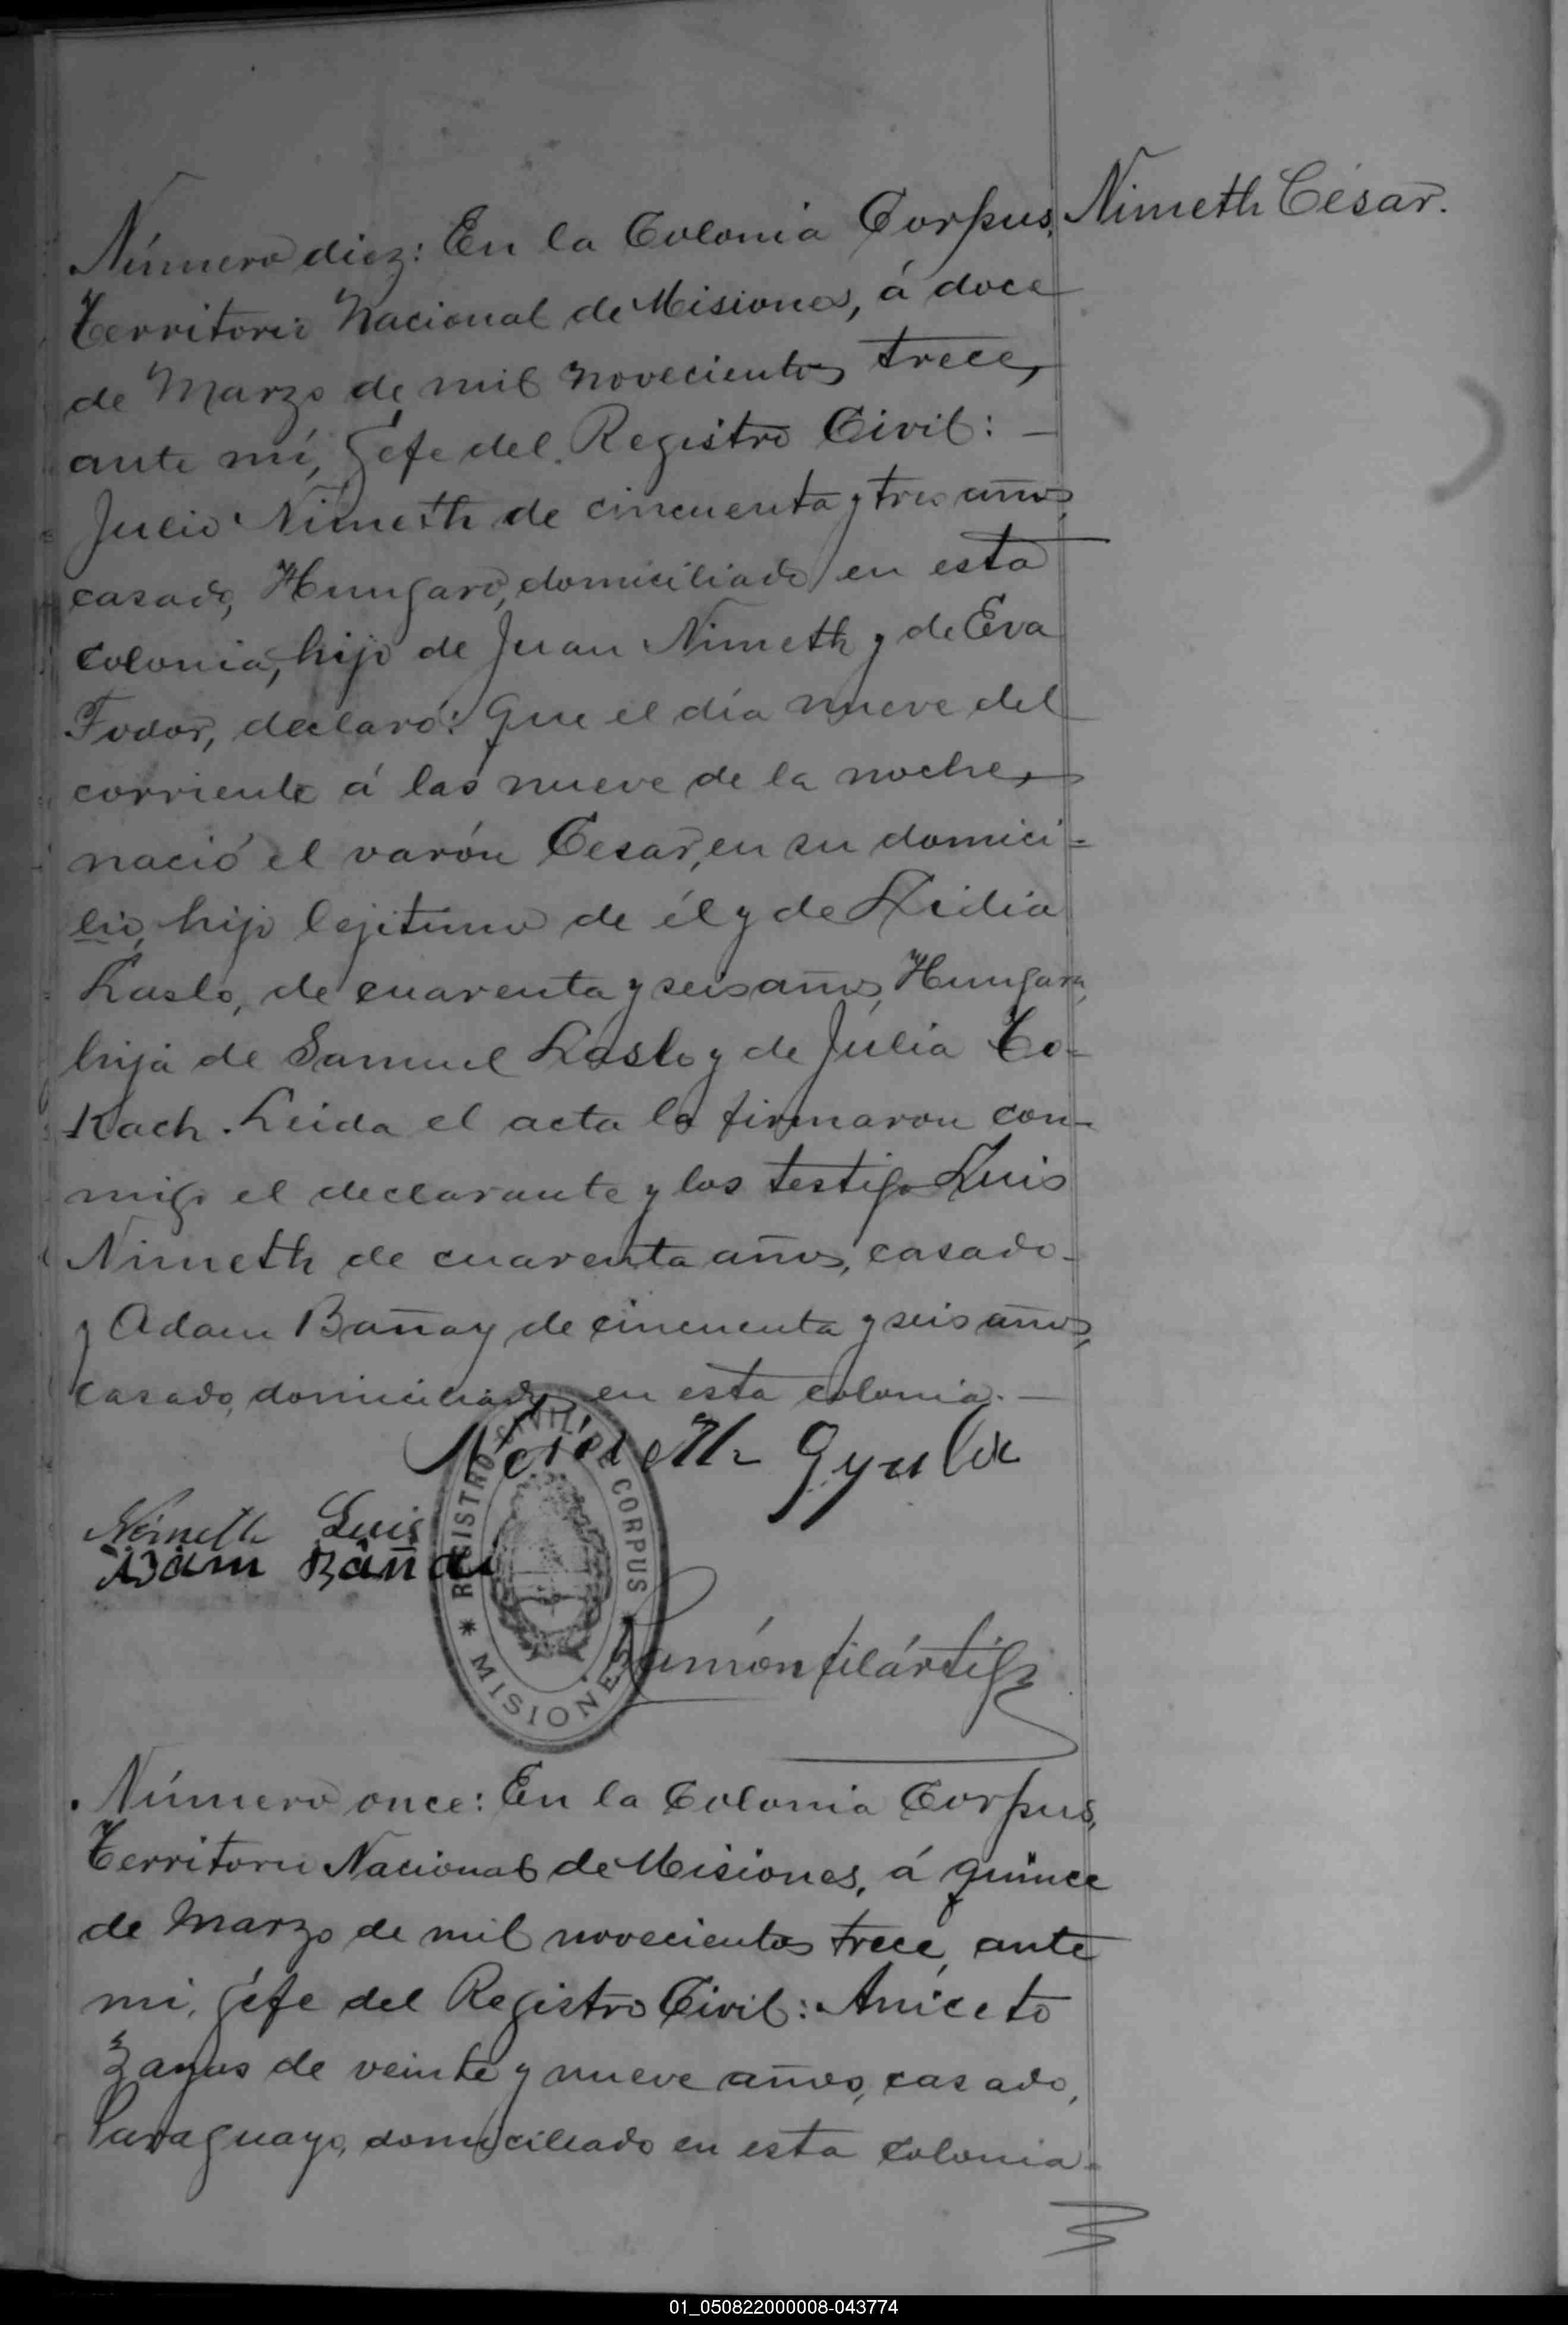 Nimeth César.
Número diez: En la Colonia Corpus,
Territorio Nacional de Misiones, á doce
de Marzo de mil novecientos trece,
ante mí, Jefe del Registro Civil: —
Julio Nimeth de cincuenta y tres años,
casado, Hungaro, domiciliado en esta
colonia, hijo de Juan Nimeth y de Eva
Fodor, declaró: Que el día nueve del
corriente á las nueve de la noche,
nació el varón Cesar, en su domici=
lio, hijo lejitimo de él y de Lidia
Laslo, de cuarenta y seis años, Hungara,
hija de Samuel Laslo y de Júlia Co-
Kach. Leida el acta la firmaron con-
migo el declarante y los testigo Luis
Nimeth de cuarenta años, casado-
y Adam Bañay de cincuenta y seis años,
casado, domiciliado en esta colonia. —
Németh Gyula
Németh Luis
Adam Bañai
REGISTRO CIVIL CORPUS
* MISIONES
Ramón filártiga
Número once: En la Colonia Corpus,
Territorio Nacional de Misiones, á quince
de Marzo de mil novecientos trece, ante
mi, Jefe del Registro Civil: Aniceto
Zayas de veinte y nueve años, casado,
Paraguayo, domiciliado en esta colonia.
01_050822000008-043774